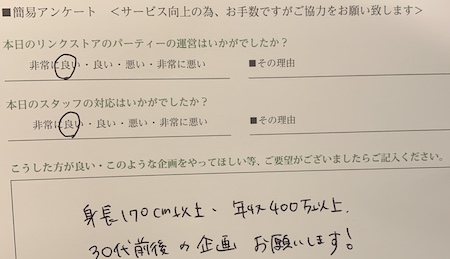 ■簡易アンケート <サービス向上の為、お手数ですがご協力をお願い致します>
本日のリンクストアのパーティーの運営はいかがでしたか?
非常に良い・良い・悪い・非常に悪い ■その理由
本日のスタッフの対応はいかがでしたか?
非常に良い・良い・悪い・非常に悪い ■その理由
こうした方が良い・このような企画をやってほしい等、ご要望がございましたらご記入ください。
身長170cm以上、年収400万以上、
30代前後の企画 お願いします!